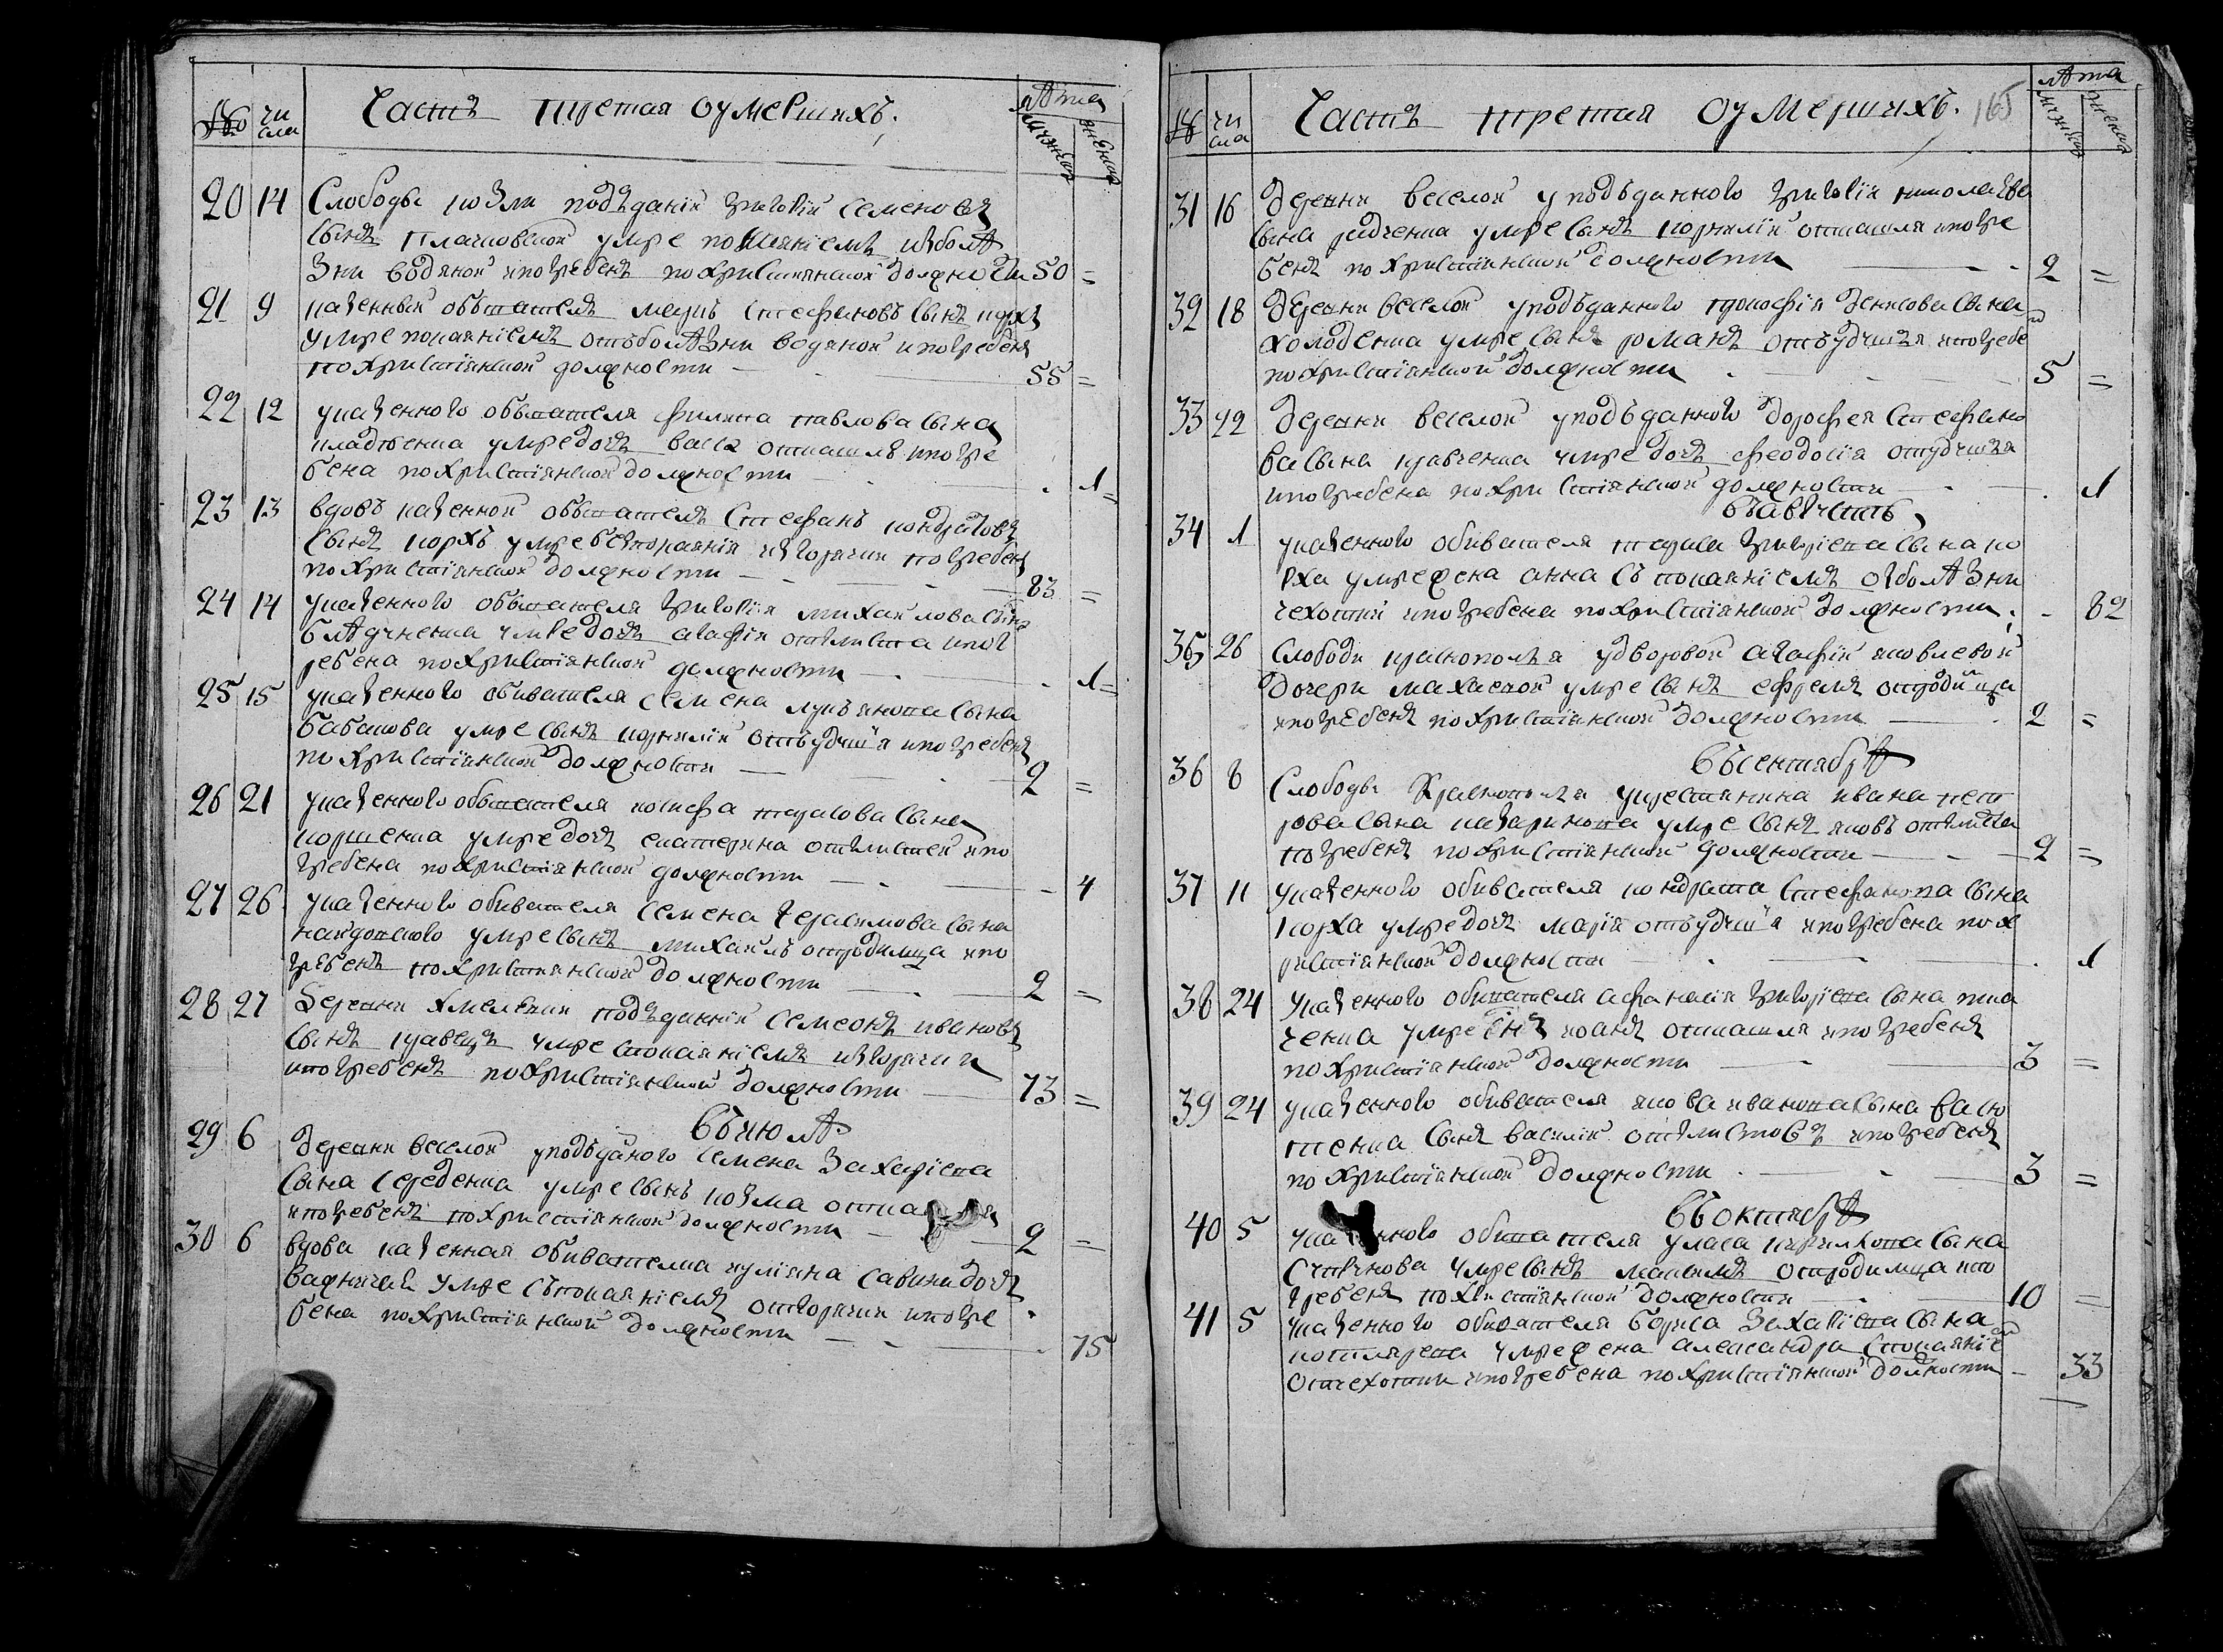 № чи сла Часть третая оумершихъ. лѣта мужеска женска
20 14 Слободы подъданій григорій семеновъ
сынъ умре покаяніемъ изболѣ
зни водяной ипогребенъ похристиянской должности 50 =
21 9 казенный обыватель стефановъ сынъ коржъ
умре покаяніемъ отъболѣзни водяной ипогребенъ
похристіянской должности — 55 =
22 12 указенного обывателя филипа павлова сына
умре дочь васса откашля ипогре
бена похристіянской должности — 1 =
23 13 вдовъ казенной обыватель стефанъ кондратовъ
сынъ коржъ умре безпокаянія изгорячки погребенъ
похристіянской должности — 83 =
24 14 указенного обывателя григорія михайлова сына
умре дочь агафія ипог
ребена похристіянской должности — 1 =
25 15 указенного обивателя семена лукъянова сына
бабакова умре сынъ корнилій отъудушья ипогребенъ
похристіянской должности — 2 =
26 21 указенного обывателя иосифа тарасова сына
коршенка умре дочь екатерина отглистей ипо
гребена похристіянской должности — 4
27 26 указенного обивателя семена герасимова сына
умре сынъ михаилъ отродимца ипо
гребенъ похристиянской должности — 2 =
28 27 Деревни хмелевки подъданній семеонъ ивановъ
сынъ кравецъ умре спокаяніемъ изгорячки
ипогребенъ похристіянской должности — 73 =
Въиюлѣ
29 6 деревни веселой уподъданого семена захаріева
сына середенка умре сынъ козма откашля
ипогребенъ похристіянской должности — 2 =
30 6 вдова казенная обивателка иулияна савина дочь
умре съпокаяніемъ отгорячки ипогре
бена похристіянской должности — 75
№ чи сла Часть третия оумершихъ. 165 лѣта мужеска женска
31 16 деревни веселой уподъданного григорія николаева
сына радченка умре сынъ корнилій откашля ипогре
бенъ похристіянской должности — 2 =
32 18 деревни веселой уподъданного прокофія денисова сына
холоденка умре сынъ романъ отъудушья ипогребе
похристіянской должности — 5 =
33 22 деревни веселой уподъданного дорофея стефано
ва сына кравченка умре дочь феодосія отудушья
ипогребена похристіянской должности — 1
Въавгустѣ
34 1 указенного обивателя тараса григоріева сына ко
ржа умре жена анна съпокаяніемъ отболѣзни
чехотки ипогребена похристіянской должности; - 82
35 26 Слободи краснополья удворовой агафіи яковлевой
дочери умре сынъ ефремъ отродимца
ипогребенъ похристіянской должности — 2 =
Въсентябрѣ
36 8 Слободы Краснополья укрестянина ивана пет
рова сына умре сынъ яковъ отглиста
погребенъ похристіянской должности — 2 =
37 11 указенного обивателя кондрата стефанова сына
коржа умре дочь марія отъудушья ипогребена пох
ристіянской должности — 1
38 24 указенного обивателя афанасія григоріева сына тка
ченка умре снъ иоанъ откашля ипогребенъ
похристіянской должности — 3 =
39 24 указенного обивателя якова иванова сына васю
тенка сынъ василій отглистовъ ипогребенъ
похристіянской должности — 3 =
Въоктябрѣ
40 5 указенного обивателя уласа кирилова сына
умре сынъ максимъ отродимца ипо
гребенъ похристіянской должности — 10 =
41 5 указенного обивателя бориса захаріева сына
котлярева умре жена александра спокаяніем
отчехотки ипогребена похристіянской должности — 33